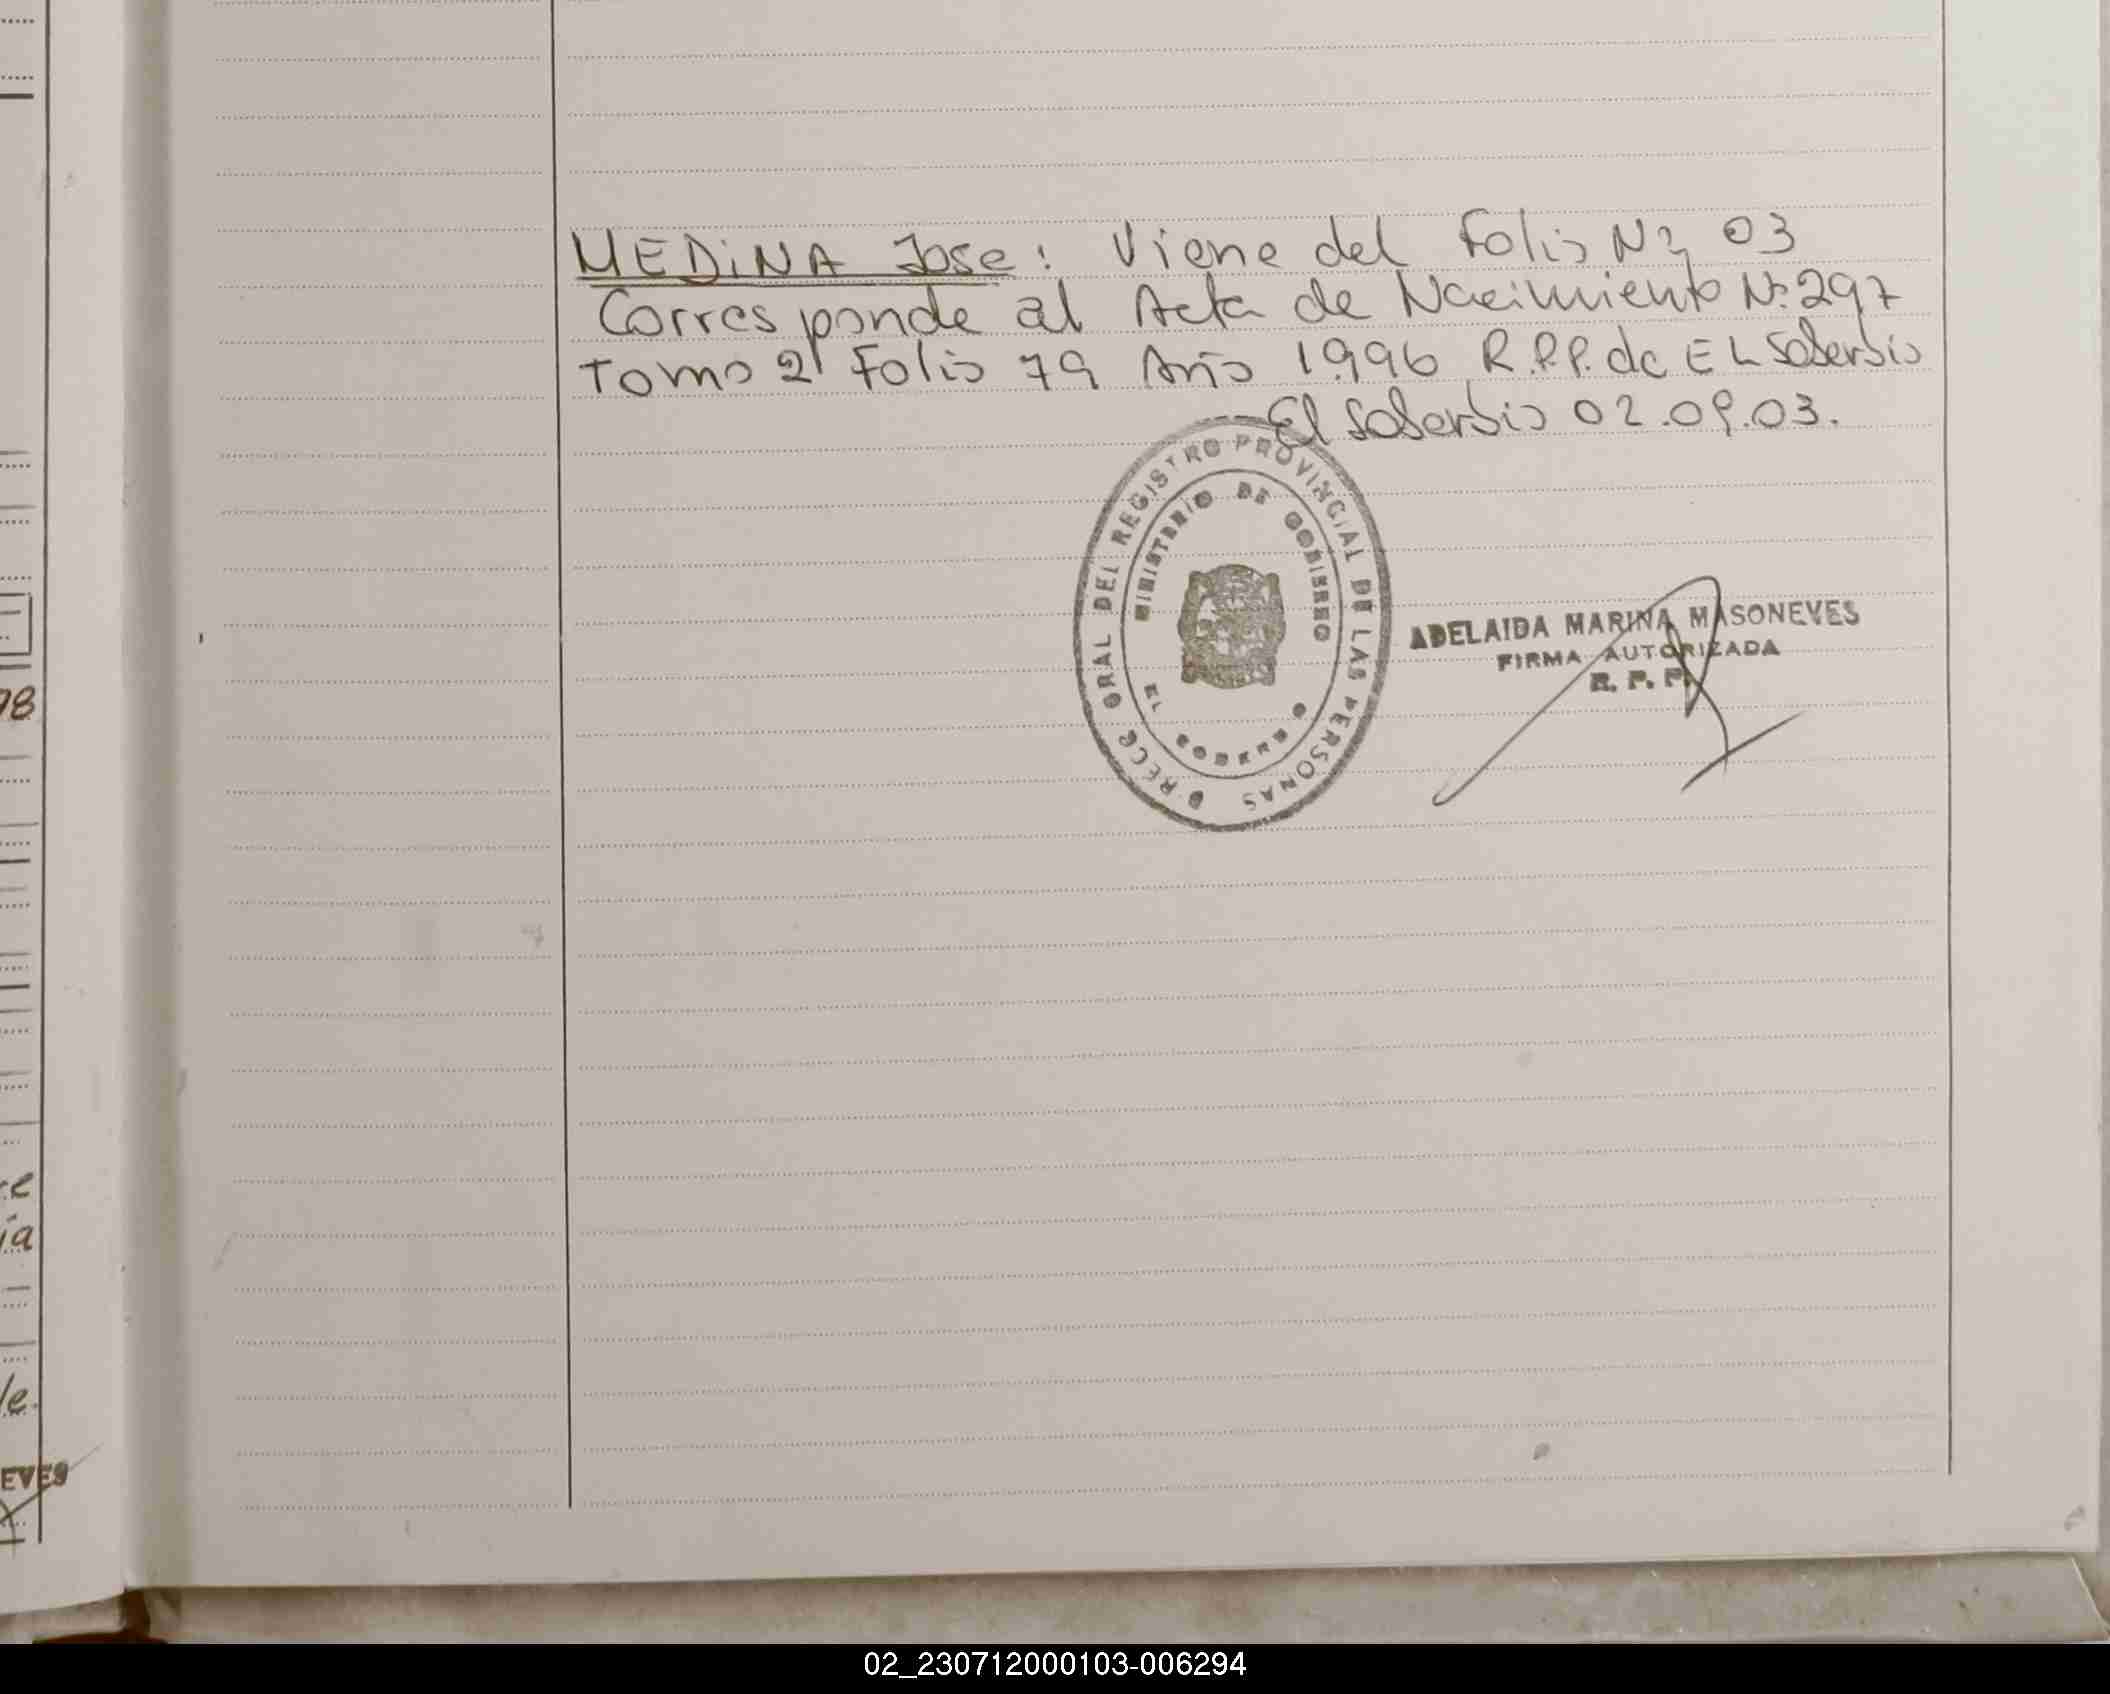 MEDINA Jose: Viene del Folio Nº 03
Corresponde al Acta de Nacimiento Nº 297
Tomo 2 Folio 79 Año 1.996 R.P.P. de EL Soberbio
El Soberbio 02.09.03.
DIRECC GRAL DEL REGISTRO PROVINCIAL DE LAS PERSONAS
MINISTERIO DE GOBIERNO
EL SOBERBIO
ADELAIDA MARINA MASONEVES
FIRMA AUTORIZADA
R. P. P.
98
re
ia
le.
EVES
02_230712000103-006294